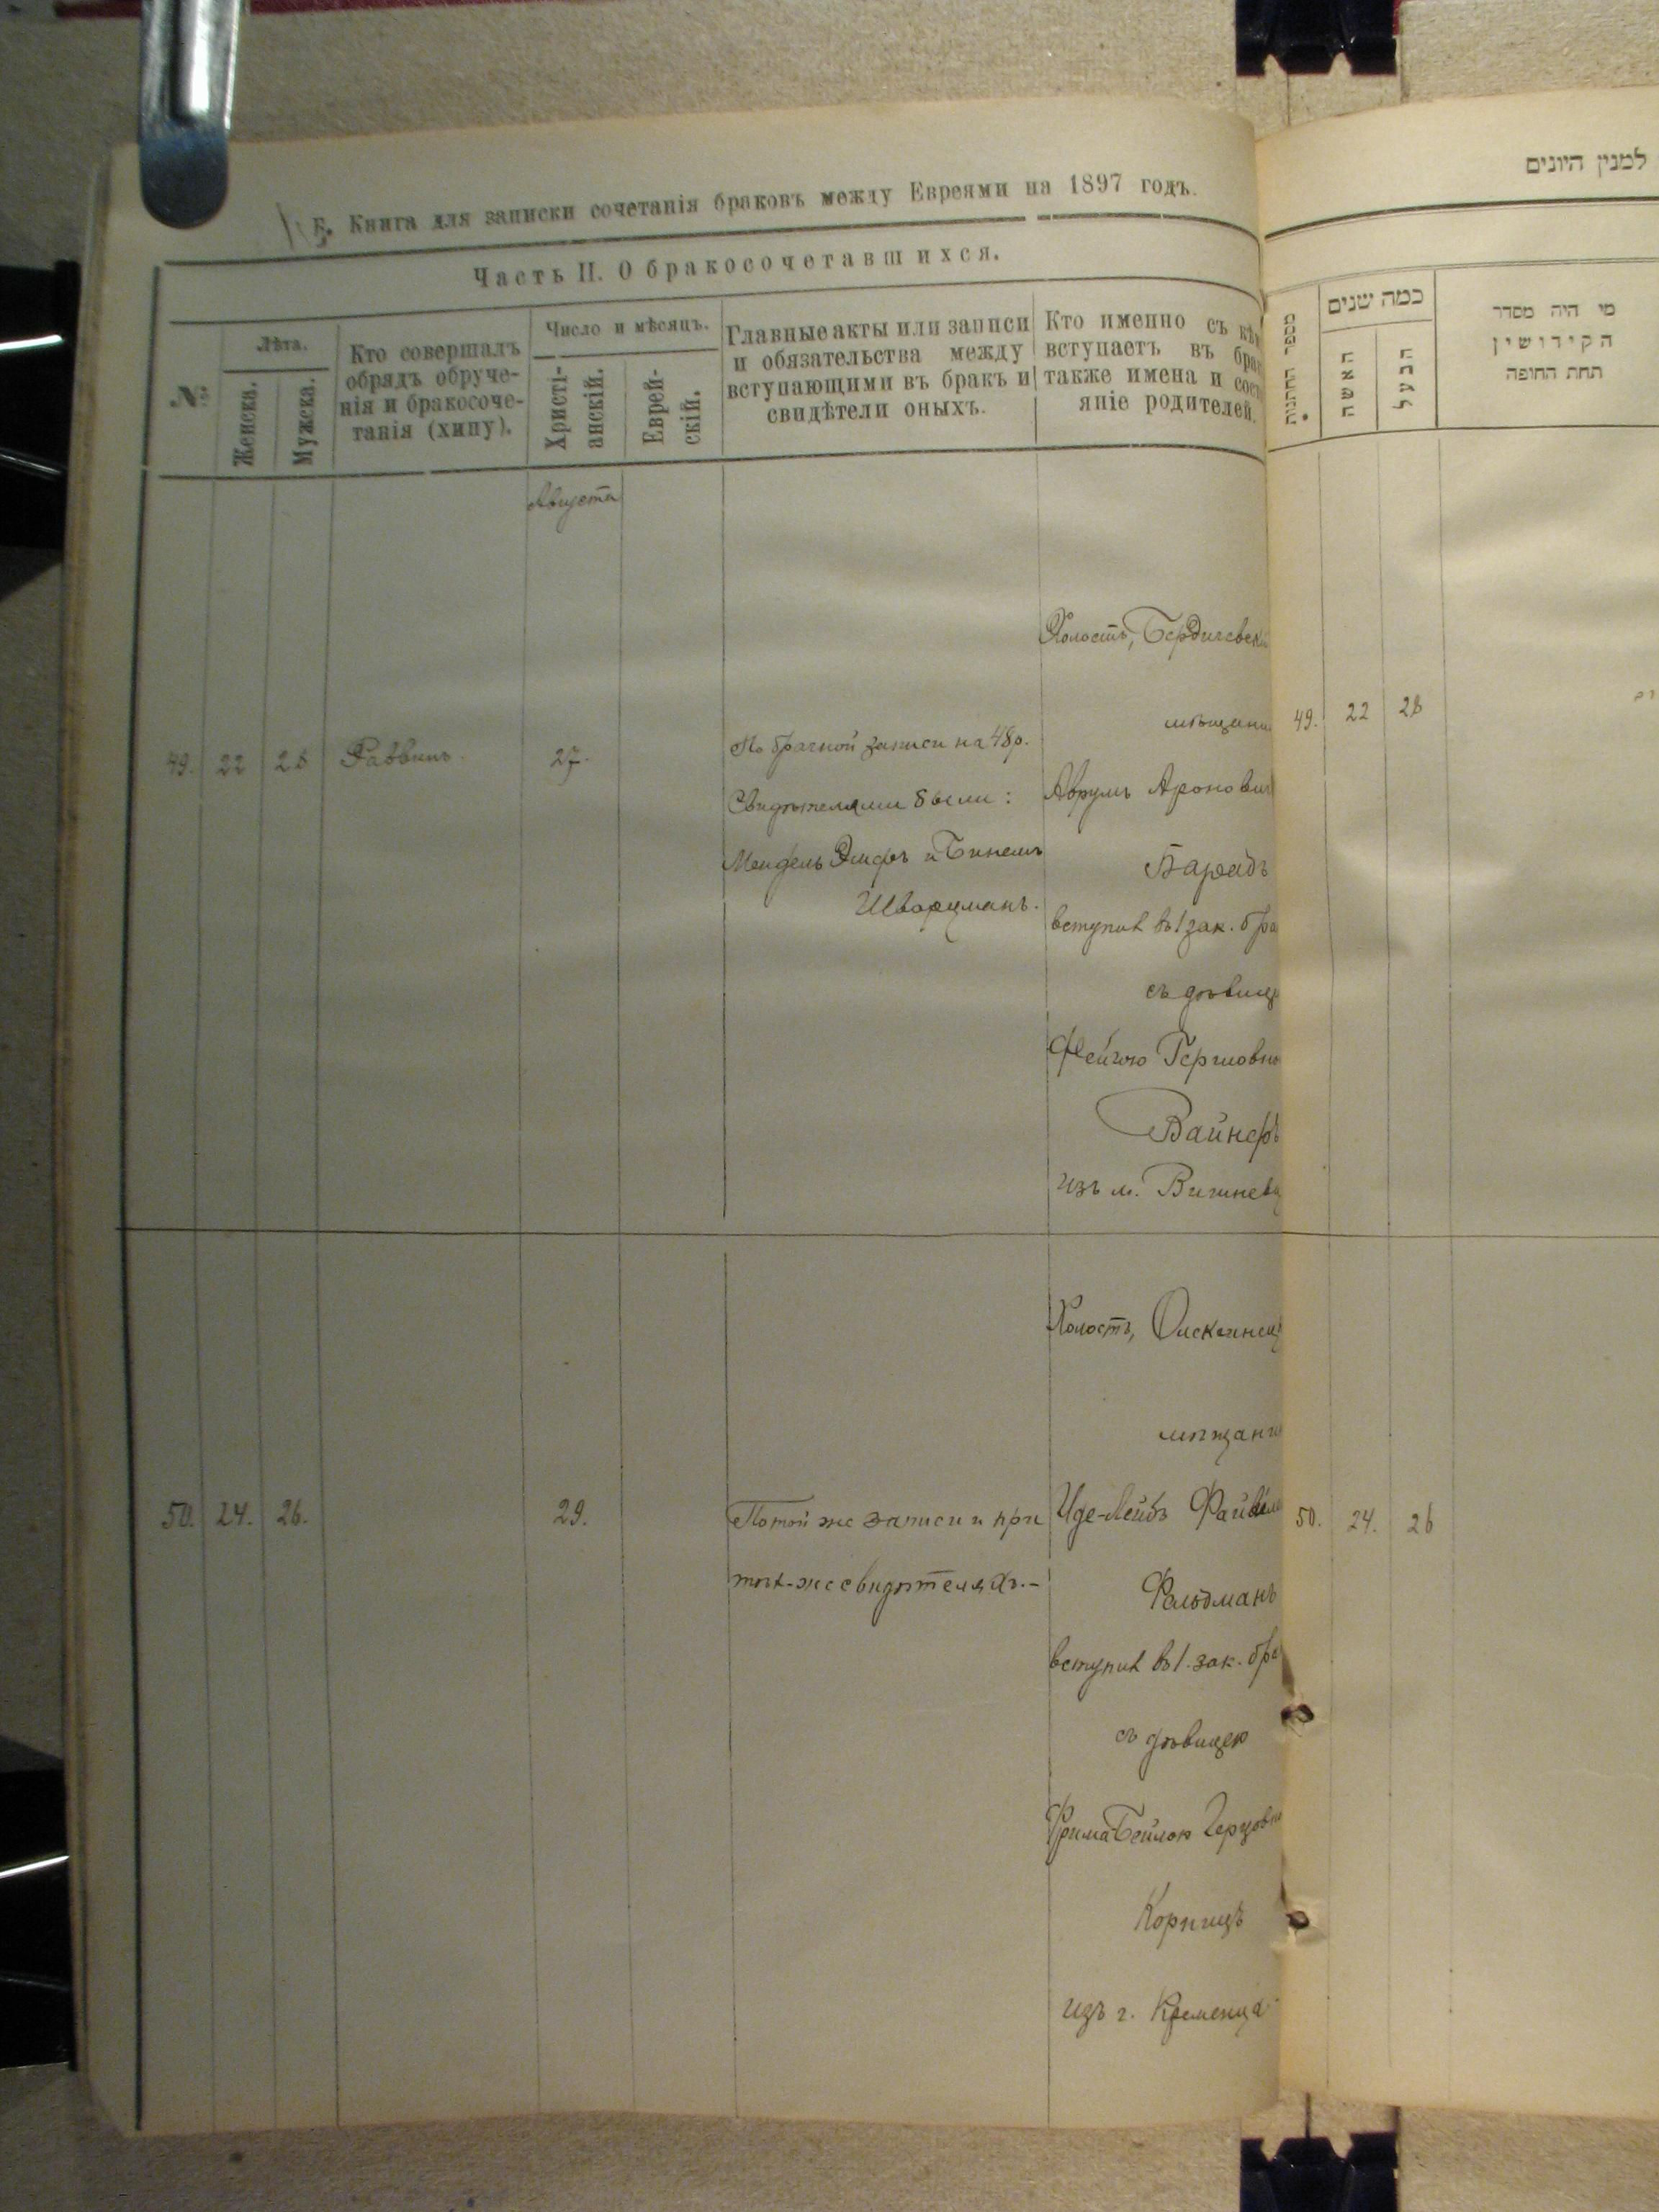 Б. Книга для записки сочетанія браковъ между Евреями на 1897 годъ.
Часть II. О бракосочетавшихся.
№
Лѣта.
Женска.
Мужска.
Кто совершалъ
обрядъ обруче-
нія и бракосоче-
танія (хипу).
Число и мѣсяцъ.
Христі-
анскій.
Еврей-
скій.
Главные акты или записи
и обязательства между
вступающими въ бракъ и
свидѣтели оныхъ.
Кто именно съ кѣм
вступаетъ въ бра
также имена и сос
яніе родителей.
Августа
49. 22 28 Раввинъ. 27.
По брачной записи на 48 р.
Свидѣтелями были:
Мендель и
Шварцманъ.
Холостъ, Бердичевскі
мѣщани
Аврумъ Аронович
Барадъ
вступил въ 1 зак. бра
съ дѣвице
Фейгою Гершовно
Вайнеръ
изъ м. Вишневц
50. 24. 26. 29.
По той же записи и при
тѣх-же свидѣтеляхъ.-
Холостъ,
мѣщанин
Иде-Лейбъ Файвел
Фельдманъ
вступил въ 1. зак. бра
съ дѣвицею
Фрима Бейлою Герцовно
Корницъ
изъ г. Кременца
למנין היונים
מספר החתונות
כמה שנים
האשה
הבעל
מי היה מסדר
הקידושין
תחת החופה
49. 22 28
50. 24. 26